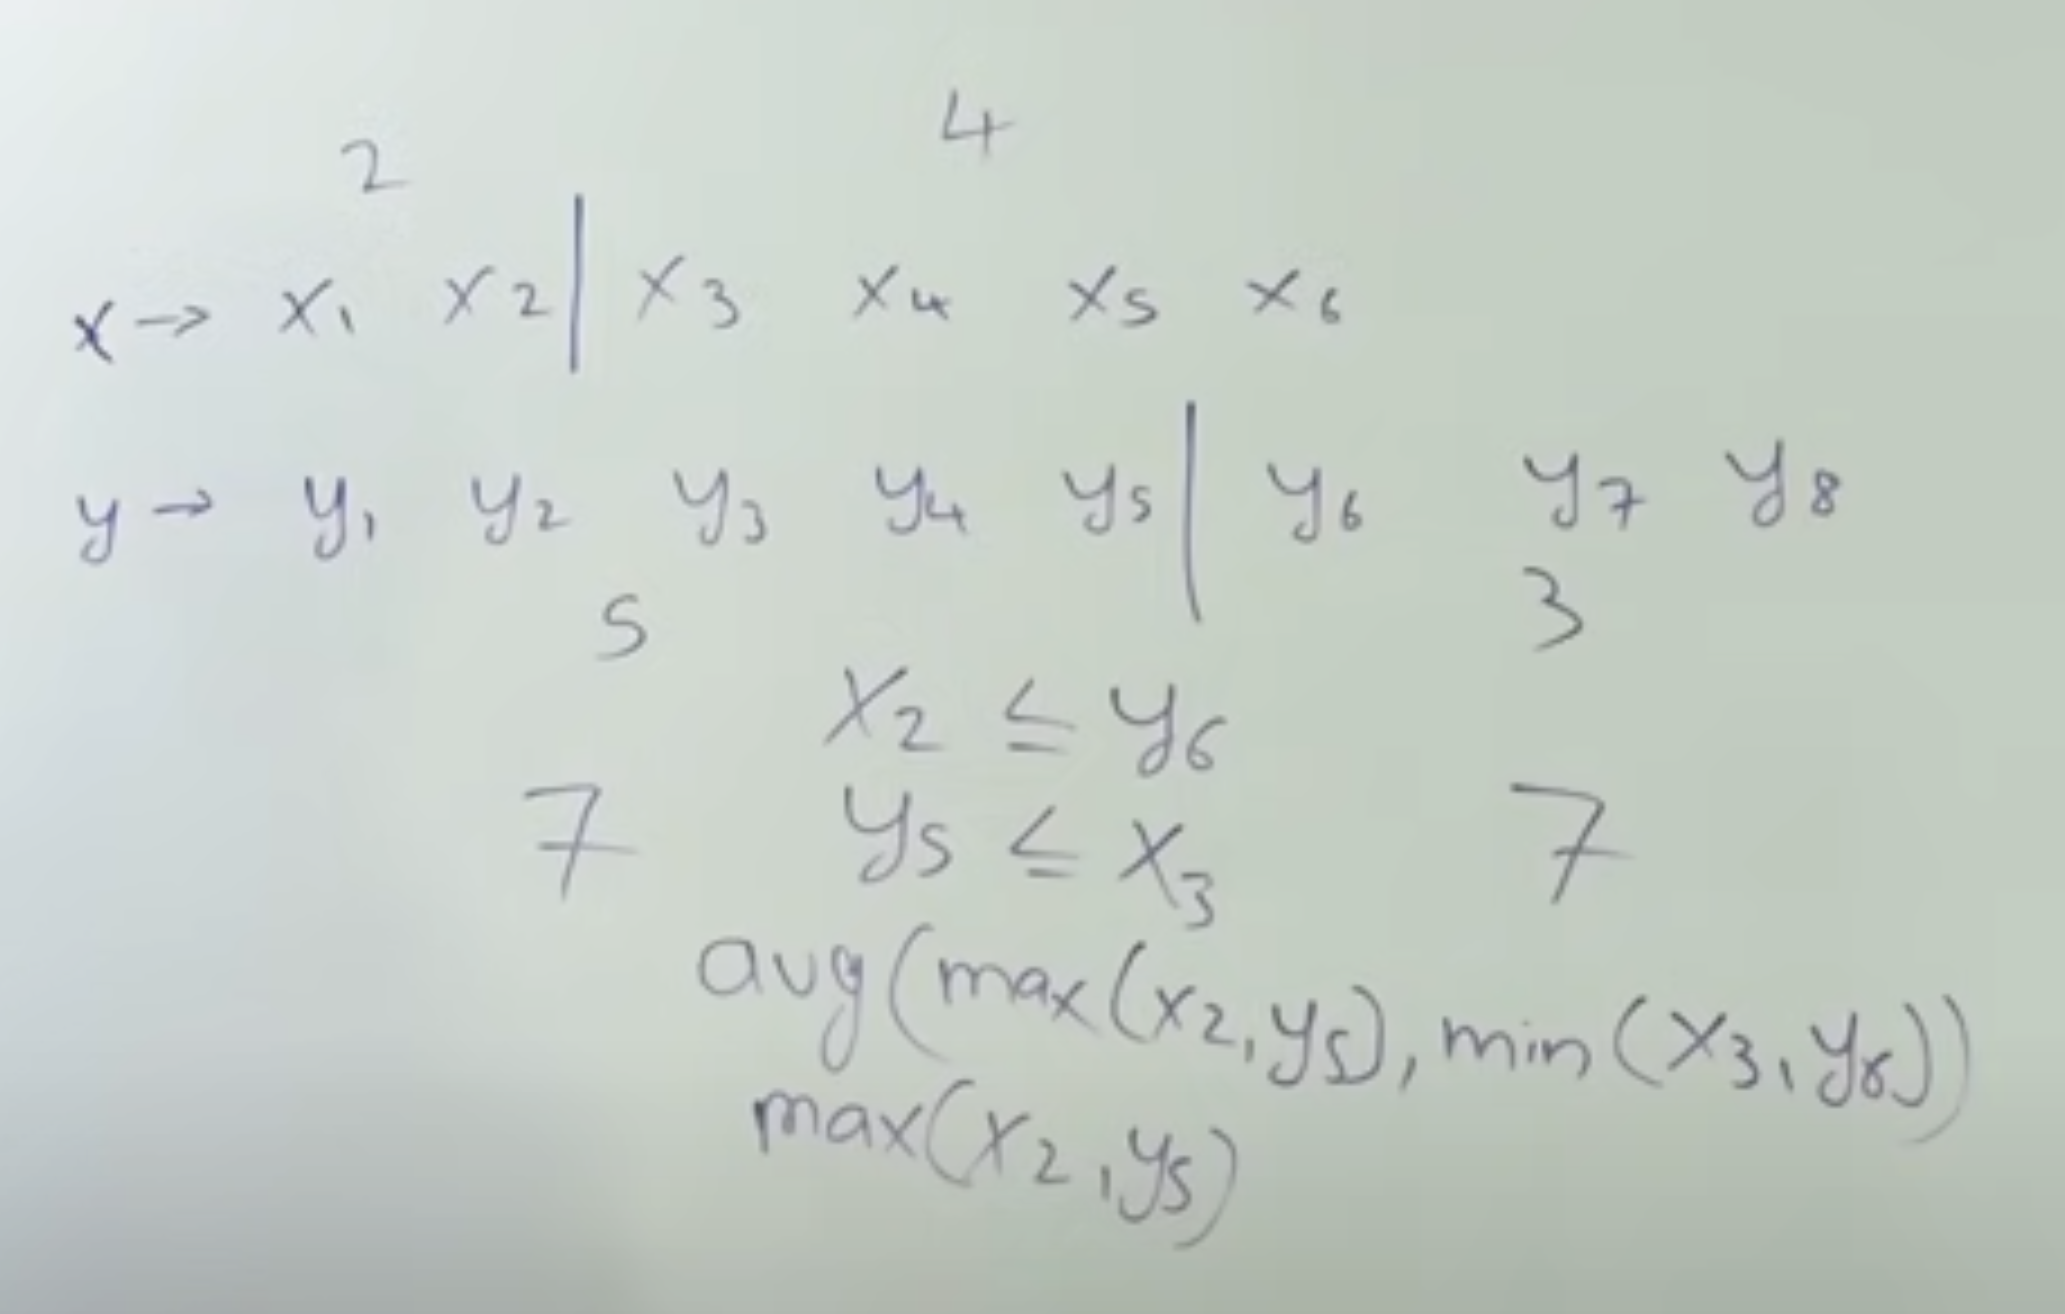 2 4
x → x1 x2 | x3 x4 x5 x6
y → y1 y2 y3 y4 y5 | y6 y7 y8
5 3
x2 ≤ y6
7 y5 ≤ x3 7
avg(max(x2,y5), min(x3,y6))
max(x2,y5)